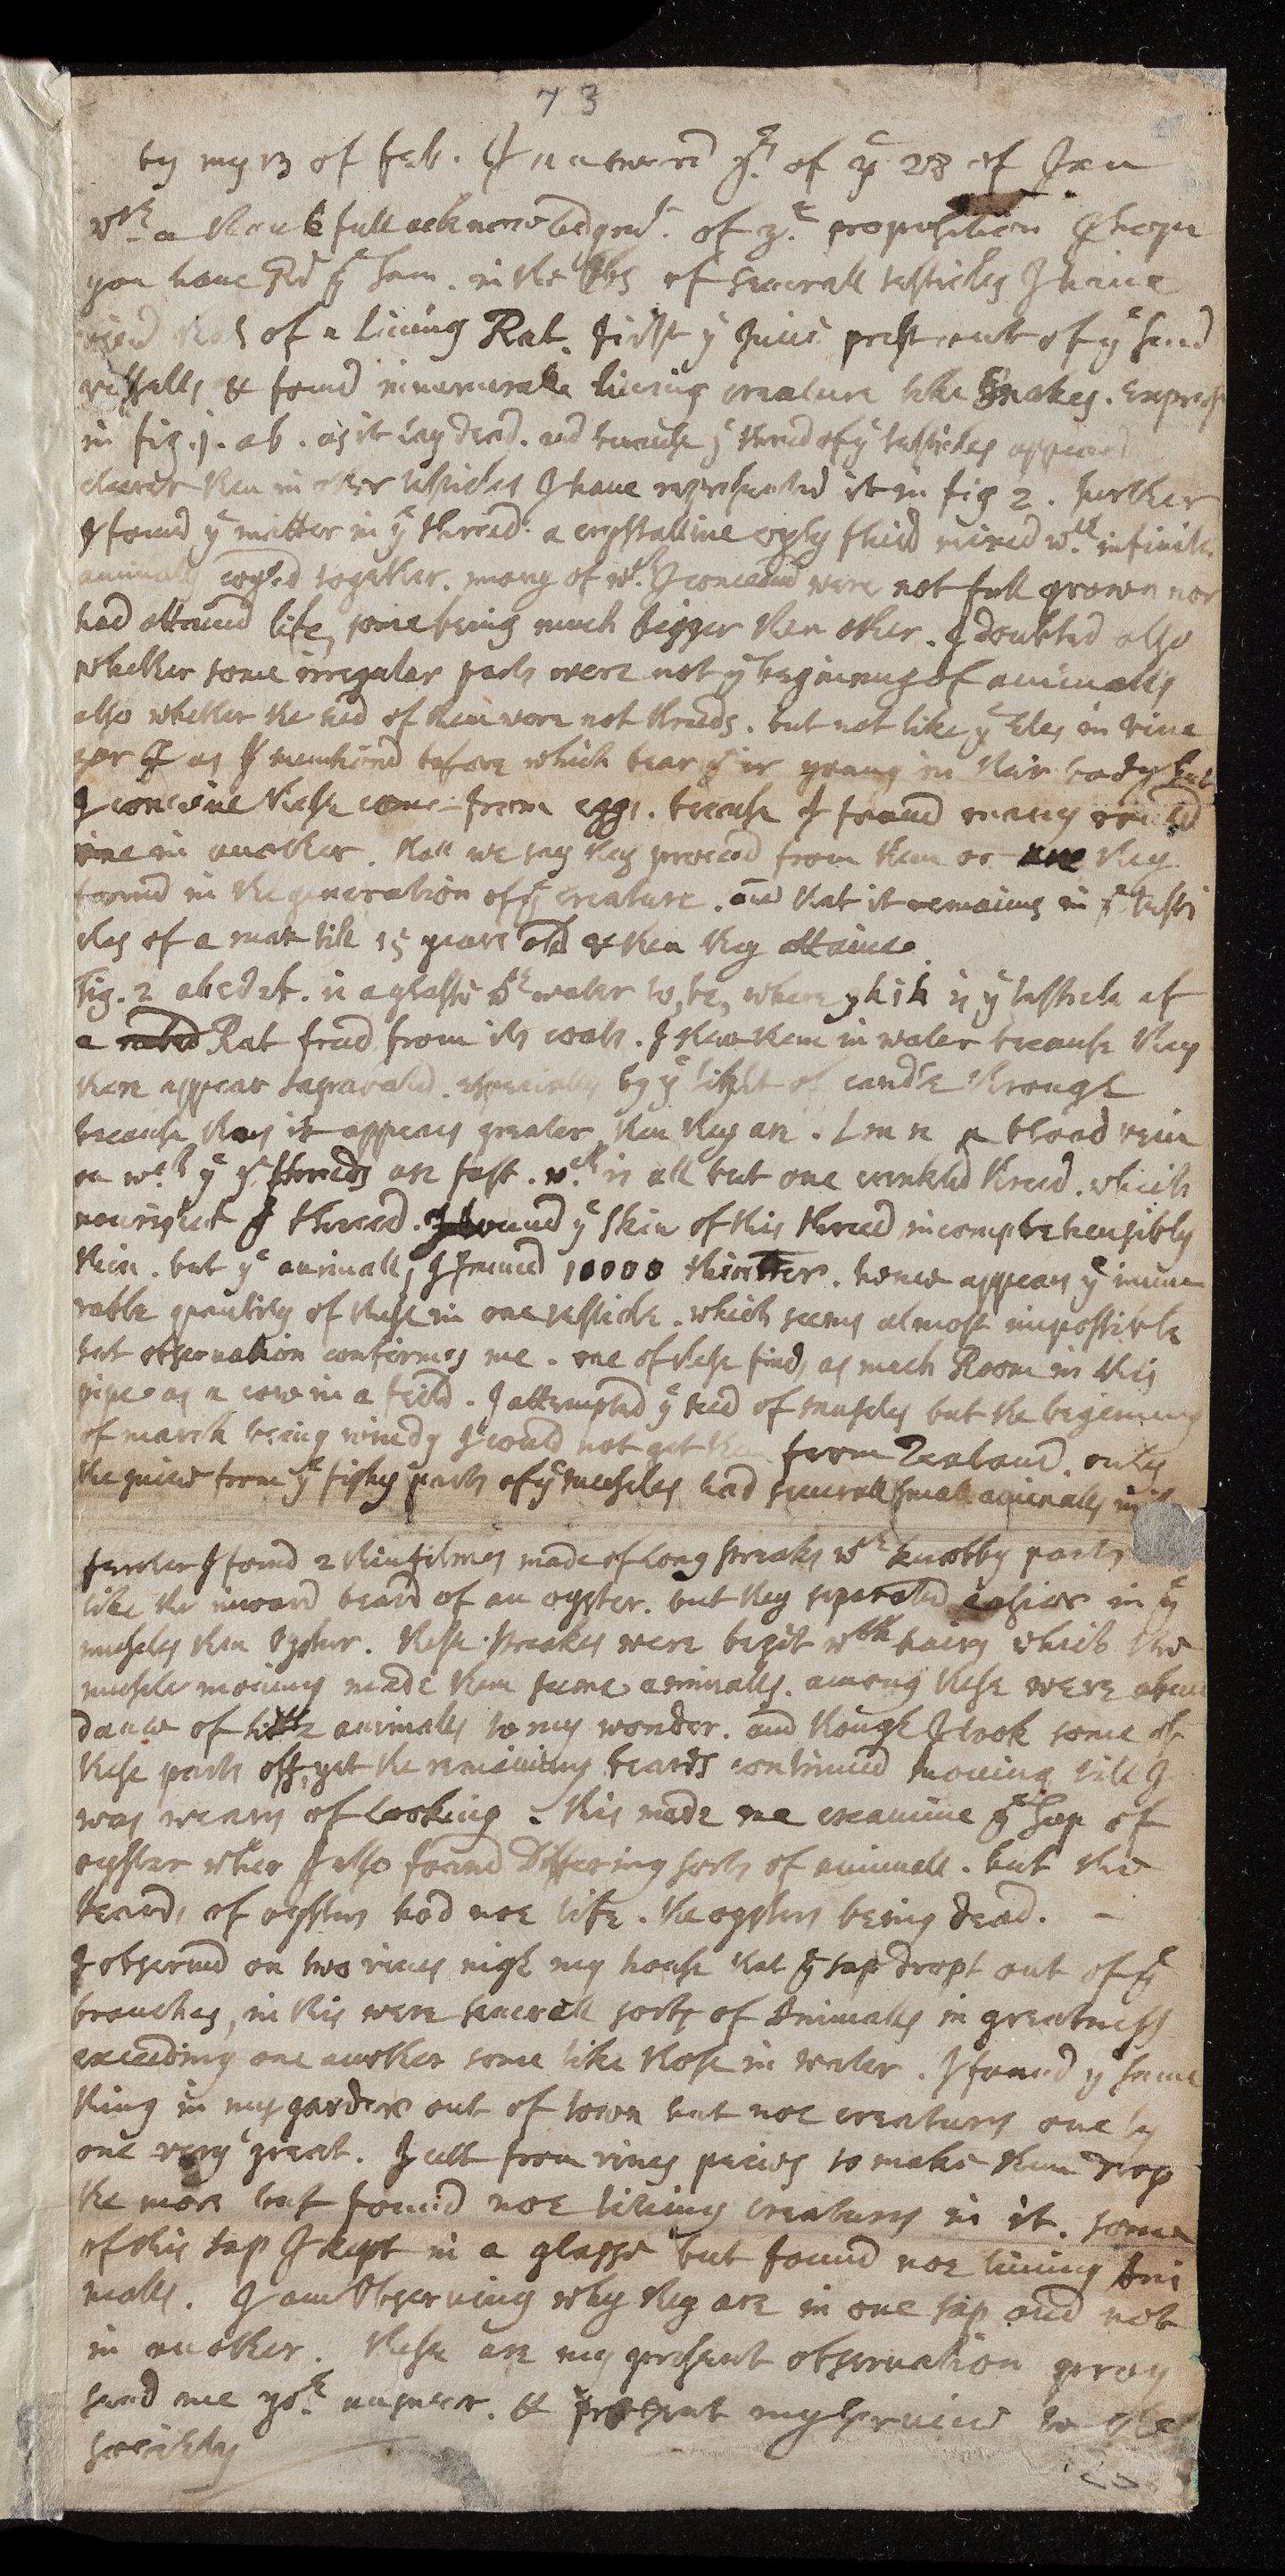 73
by my 13 of feb. I answerd yrs of ye 28 of Jan
wth a thankfull acknowledgmt. of yr proposition I hope
you have recd ye sam. in the of severall testicles I have
that of a Living Rat. first ye juice prest out of ye seed
vessells & found innumerable liuing creature like Snakes. exprest
in fig. 1. ab. as it lay dead. and because ye thred of ye testicles appeard
clearer then in other testicles I have represented it in fig 2. further
I found ye matter in ye thread. a crystalline oyly fluid mixed wth infinite
animals together. many of wch I conceaud were not full grown nor
had attaind life, some being much bigger then other. I doubted also
whether some irregular parts were not ye begining of animalls
also whether the sed of them were not threds. but not like ye Eles in vine
gar as I mentiond before which bear yir young in their body but
I conceive these come from eggs. because I found many
one in another. shall we say they proceed from them or are they
found in the generation of ye creature. and that it remains in ye testi
cles of a man till 15 years old & then they attaine
Fig. 2 abcdef. is a glasse wth water to, be, where ghik is ye testicle of
a Rat freed from its coats. I shew them in water because they
there appear separated. especially by ye light of candle through
because thus it appears greater then they are. Lmn a blood vein
on wch ye ye threeds are fast. wch is all but one wrinkled thred. which
nourishet ye threed. I found ye skin of this threed incomprehensibly
thin. but ye animalls, I found 10000 thinner. hence appears ye innume
rable quantity of these in one testicle. which seems almost impossible
but observation confirmes me. one of these finds as much Room in this
pipe as a cow in a feild. I attempted ye seed of musles but the begining
of march being windy I could not get them from Zealand. only
the juice from ye fishy parts of ye muscles had severall small animalls in it
further I found 2 thin filmes made of long streaks wth knobby parts
like the inward beard of an oyster. but they separated easier in ye
muscles then Oyster. these streakes were besit wth haires which the
muscle moving made them seeme animalls. among these were abun
dance of little animalls to my wonder. and though I took some of
these parts off, yet the remaining beards continued moving till I
was weary of looking. this made me examine ye sap of
oyster wher I also found Differing sorts of animall. but the
beards of oysters had noe life. the oysters being dead. –
I observed on two vines nigh my house that ye sap dropt out of ye
branches, in this were severall sorts of Animalls in greatness
exceeding one another some like those in water. I found ye same
thing in my garden out of town but noe creatures onely
one very great. I cutt from vines peices to make them drop
the more but found noe living creatures in it. some
of this sap I kept in a glasse but found noe living Ani
malls. I am Observing why they are in one sap and not
in another. these are my present observation pray
send me yor answer. & present my service to the
society